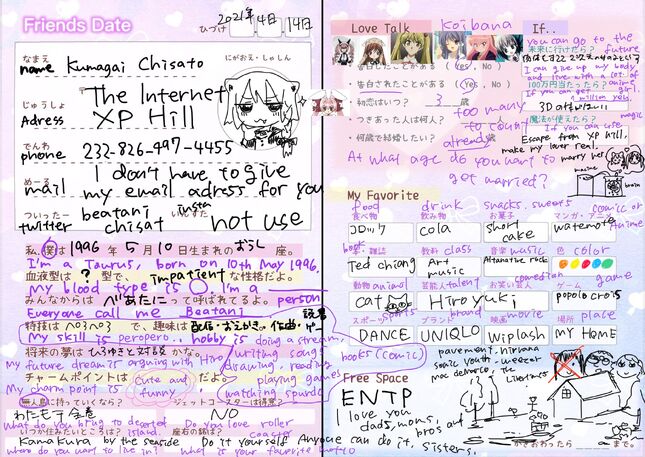 Friends Date
ひづけ 2021年4月14日
なまえ
name Kumagai Chisato
にがおえ・しゃしん
じゅうしょ
Adress
The Internet
XP Hill
でんわ
phone 232-826-497-4455
めーる
mail
I don't have to give
my email adress for you
ついったー
twitter
beatani
chisat
insta
not use
私、僕は1996年5月10日生まれのおうし座。
I'm a Taurus, born on 10th May 1996.
血液型は?型で、impatientな性格だよ。
My blood type is O. I'm a person
みんなからはべあたにって呼ばれてるよ。
Everyone call me Beatani
特技はぺろぺろで、趣味は配信・おえかき・作曲・ゲーム 読書
My skill is peropero.. hobby is doing a stream,
将来の夢はひろゆきと対談かな。
writing songs
My future dream is arguing with Hiro
drawing, reading
books (comic)
チャームポイントはCute and funnyだよ。
My charm point is
playing games
watching spundc
無人島に持っていくなら?
ジェットコースターは得意?
わたモテ全巻
NO
What do you bring to deserted island.
Do you love roller coaster
いつか住みたいところは?
座右の銘は?
Kamakura by the seaside
Do it yourself Anyone can do it, sisters.
where do you want to live in?
what is your favorite motto
Love Talk
Koibana
告白したことがある (Yes, No)
告白されたことがある (Yes, No)
初恋はいつ? 3歳
つきあった人は何人? 人
too many to count
何歳で結婚したい? 歳
already
At what age do you want to get married?
If..
you can go to the future
未来に行けたら?
I can give up my body and live with a lot of anime girl
100万円当たったら?
If you can get 1 million yen.
魔法が使えたら?
If you can use magic
Escape from XP hill,
make my laver real.
marry he!
machine
brain
My Favorite
food
食べ物
コロッケ
drink
飲み物
cola
snacks. sweets
お菓子
short cake
comic or Anime
マンガ・アニメ
watamote
本・雑誌
Ted chiang
教科 class
Art
music
音楽 music
Altanative rock
色 color
動物 animal
cat
芸能人 talent
Hiroyuki
お笑い芸人
comedian
ゲーム
game
popolocrois
スポーツ
sports
DANCE
ブランド
brand
UNIQLO
映画
movie
Wiplash
場所
place
MY HOME
pavement. nirvana
sonic youth weezer
mac demarco. the Libertines
Free Space
ENTP
I love you
dads, moms, and
bros
かきおわったら まで。